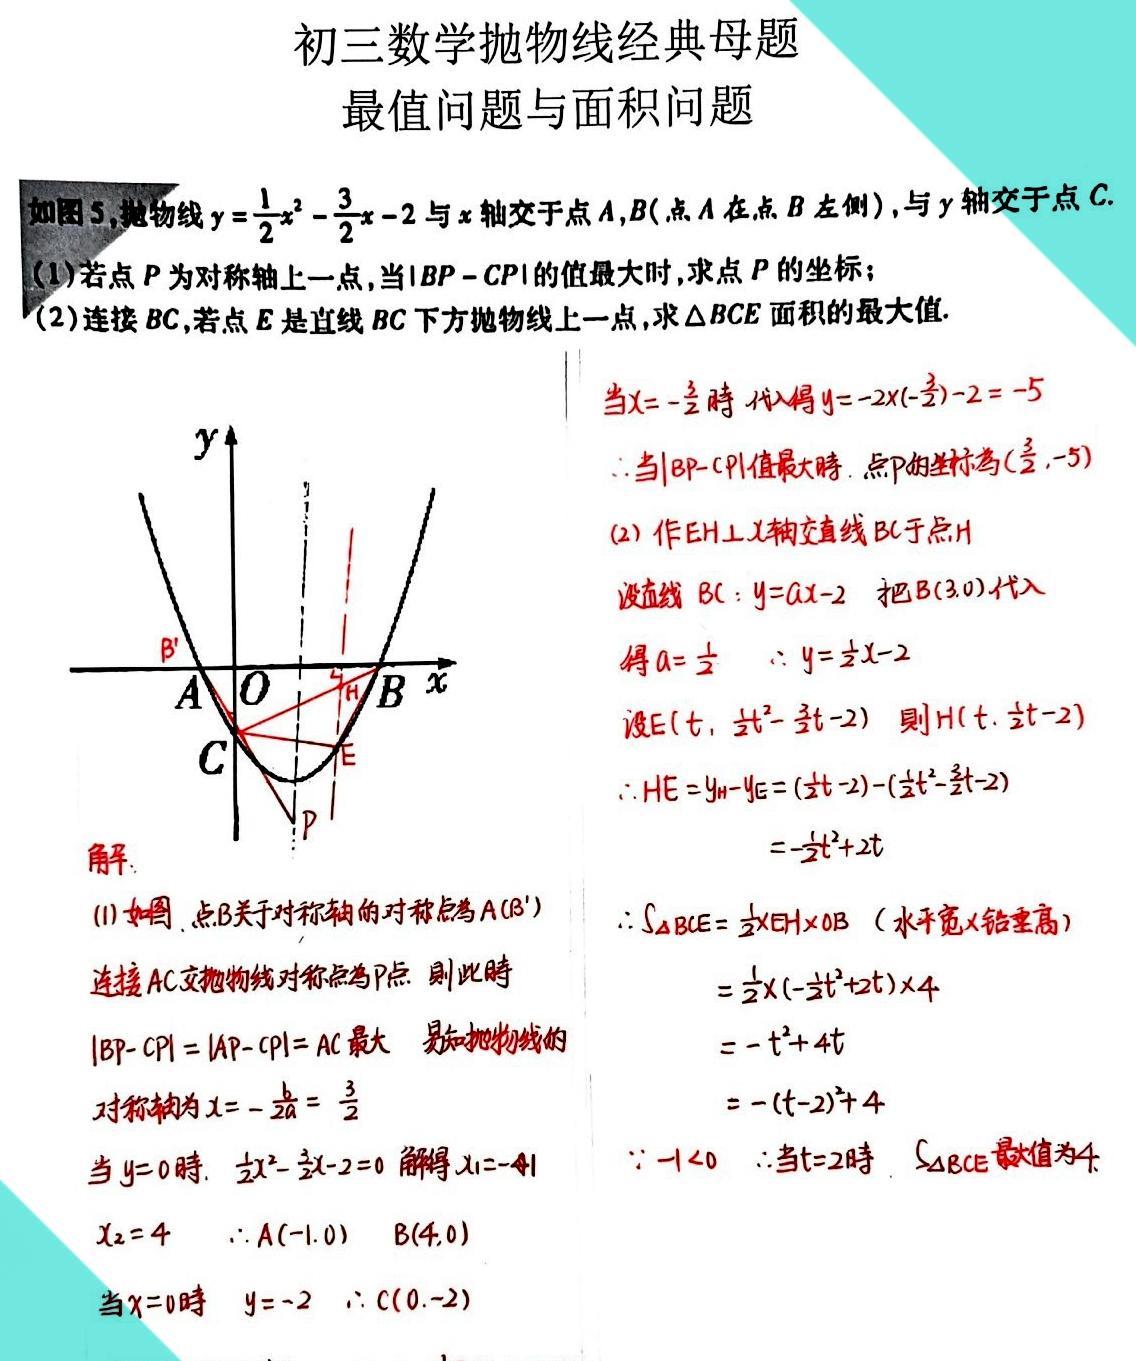 初三数学抛物线经典母题
最值问题与面积问题
如图5,抛物线 y = 1/2 x² - 3/2 x - 2 与 x 轴交于点 A,B(点 A 在点 B 左侧),与 y 轴交于点 C.
(1)若点 P 为对称轴上一点,当|BP - CP|的值最大时,求点 P 的坐标;
(2)连接 BC,若点 E 是直线 BC 下方抛物线上一点,求△BCE 面积的最大值.
y
B'
A
O
H
B
x
C
E
P
解:
(1) 如图、点B关于对称轴的对称点為A(B')
连接AC交抛物线对称点為P点 則此時
|BP-CP| = |AP-CP| = AC 最大 易知抛物线的
对称轴为 x = - b/2a = 3/2
当 y=0時. 1/2x² - 3/2x - 2 = 0 解得 x₁=-1
x₂ = 4 ∴ A(-1.0) B(4,0)
当x=0時 y=-2 ∴ C(0.-2)
当x= -3/2時 代入得 y= -2×(-3/2)-2 = -5
∴当|BP-CP|值最大時. 点P的坐标為(3/2,-5)
(2) 作EH⊥x轴交直线BC于点H
设直线 BC: y=ax-2 把B(3.0)代入
得 a= 1/2 ∴ y= 1/2x-2
设E(t, 1/2t²- 3/2t-2) 則H(t. 1/2t-2)
∴HE = yH-yE = (1/2t-2)-(1/2t²-3/2t-2)
= -1/2t²+2t
∴S△BCE = 1/2×EH×OB (水平宽×铅垂高)
= 1/2×(-1/2t²+2t)×4
= -t²+4t
= -(t-2)²+4
∵ -1<0 ∴当t=2時. S△BCE最大值为4.